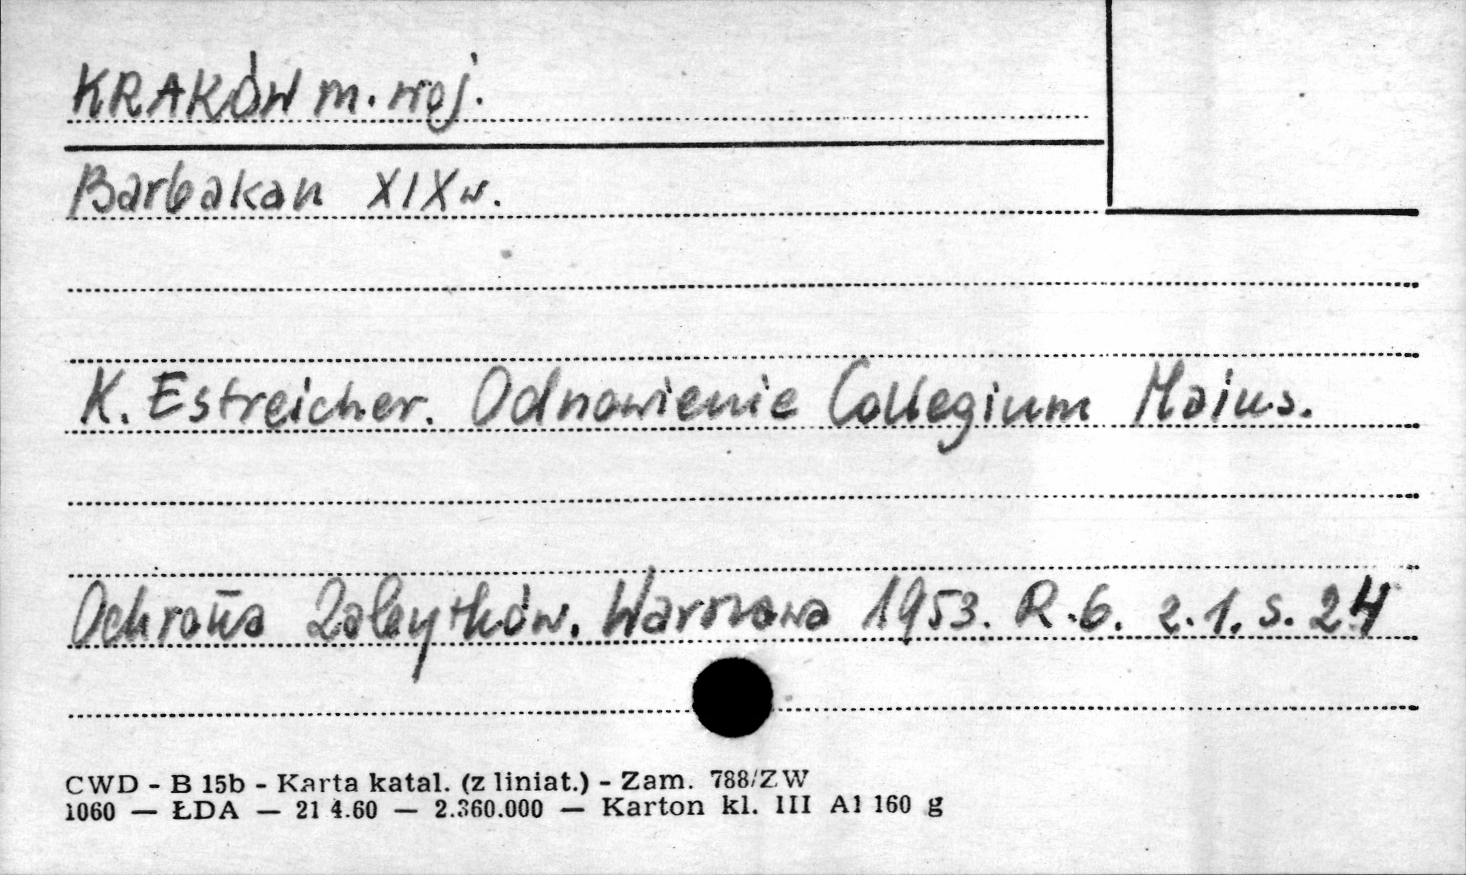 KRAKÓW m. woj.
Barbakan XIX w.
K. Estreicher. Odnowienie Collegium Maius.
Ochrona Zabytków. Warszawa 1953. R.6. z.1. s. 24
CWD - B 15b - Karta katal. (z liniat.) - Zam. 788/ZW
1060 — ŁDA — 21 4.60 — 2.360.000 — Karton kl. III A1 160 g